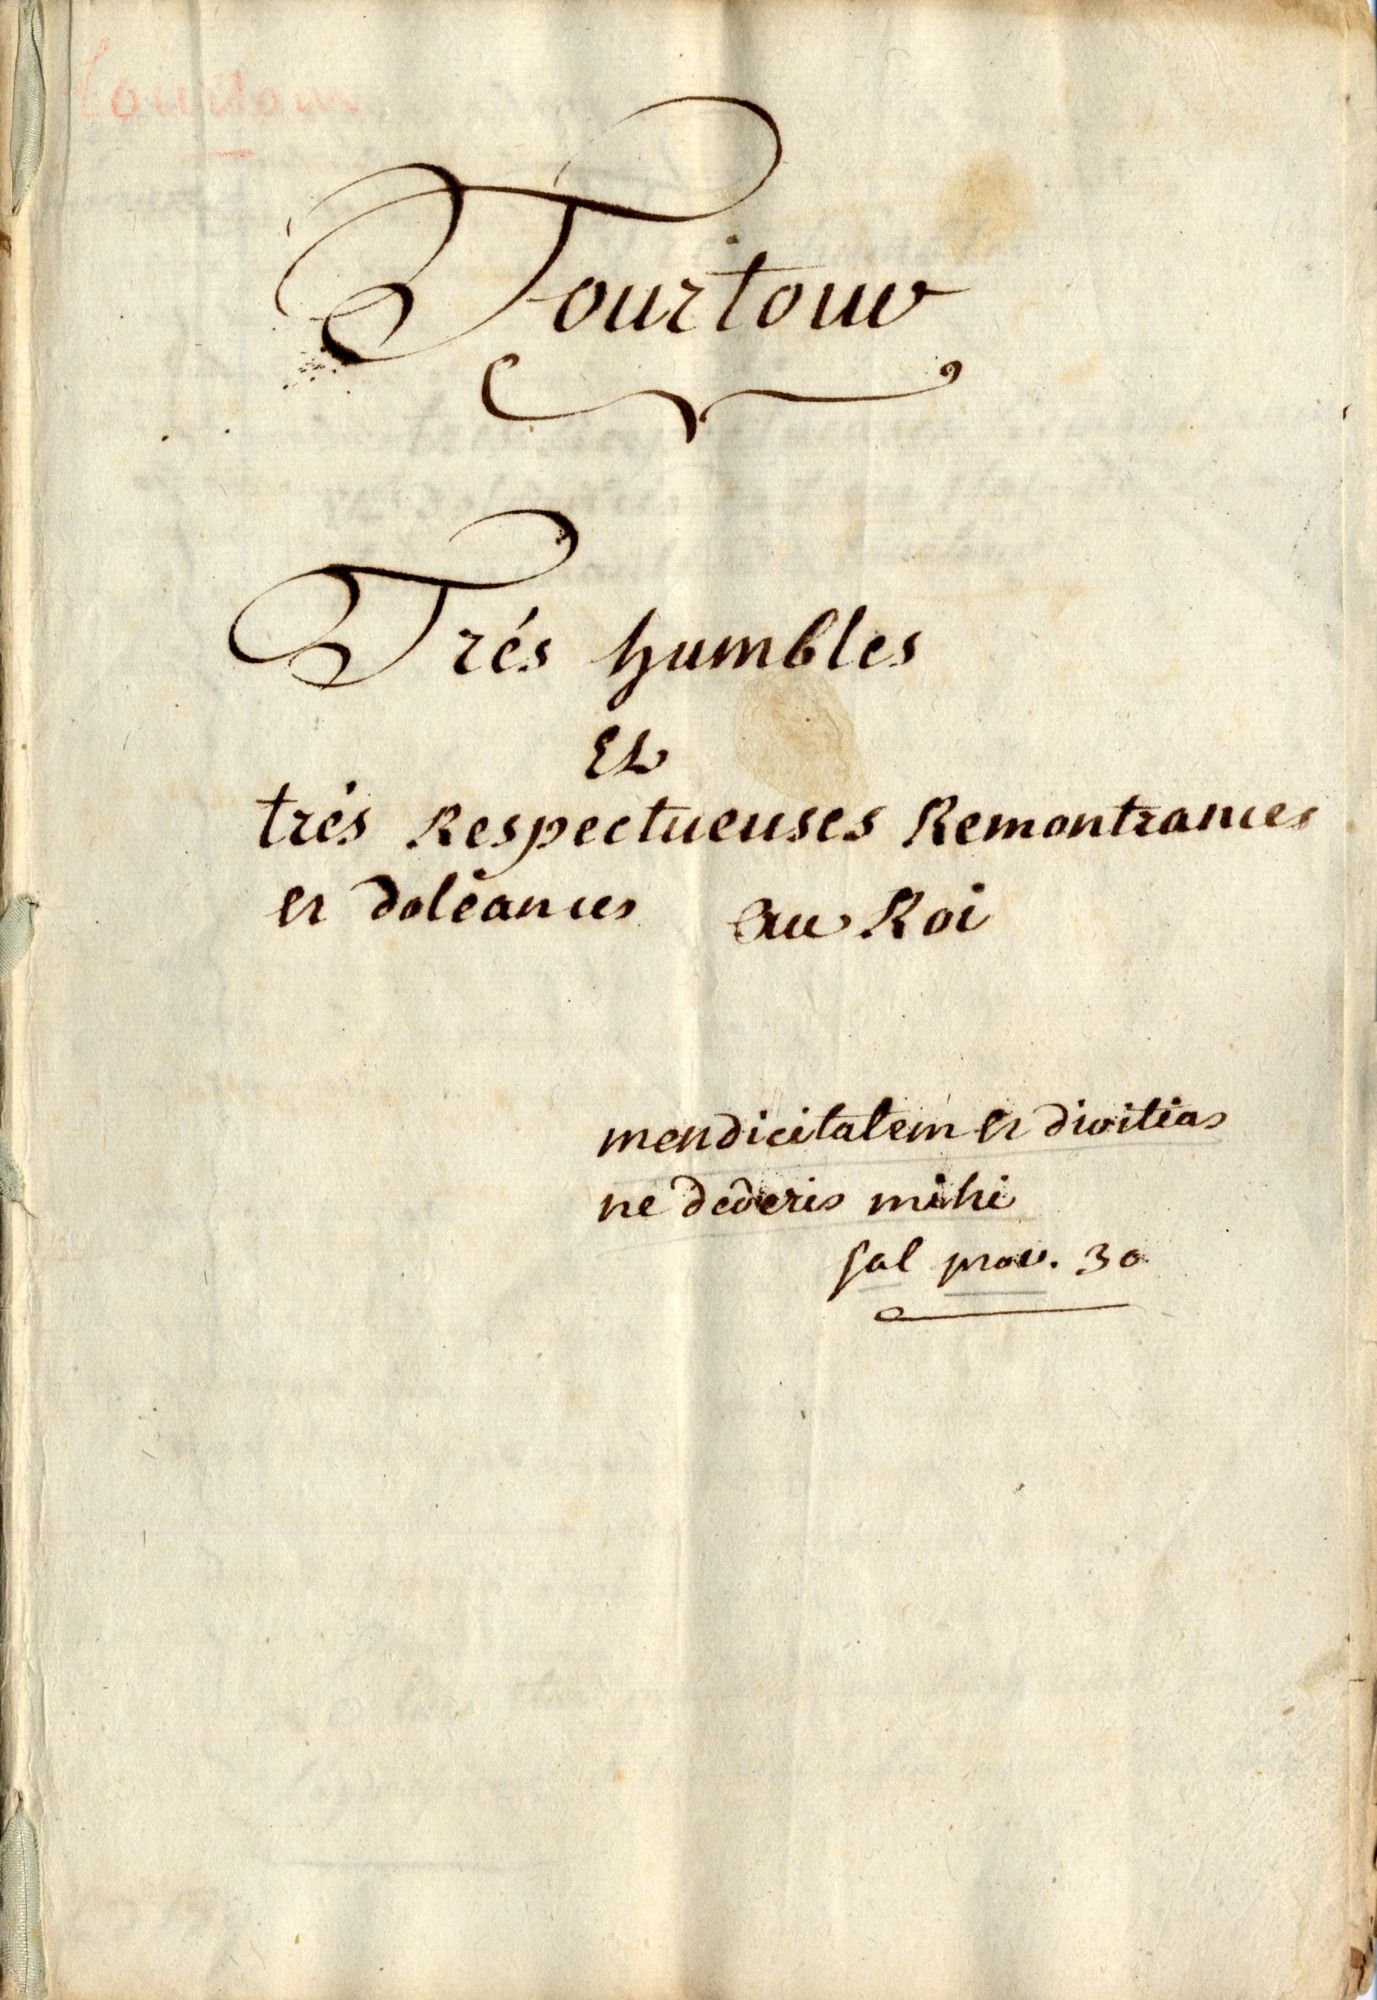 Tourtour
Tourtour
Trés humbles
Et
trés Respectueuses Remontrances
et doléances au Roi
mendicitatem et divitias
ne dederis mihi
sal prov. 30